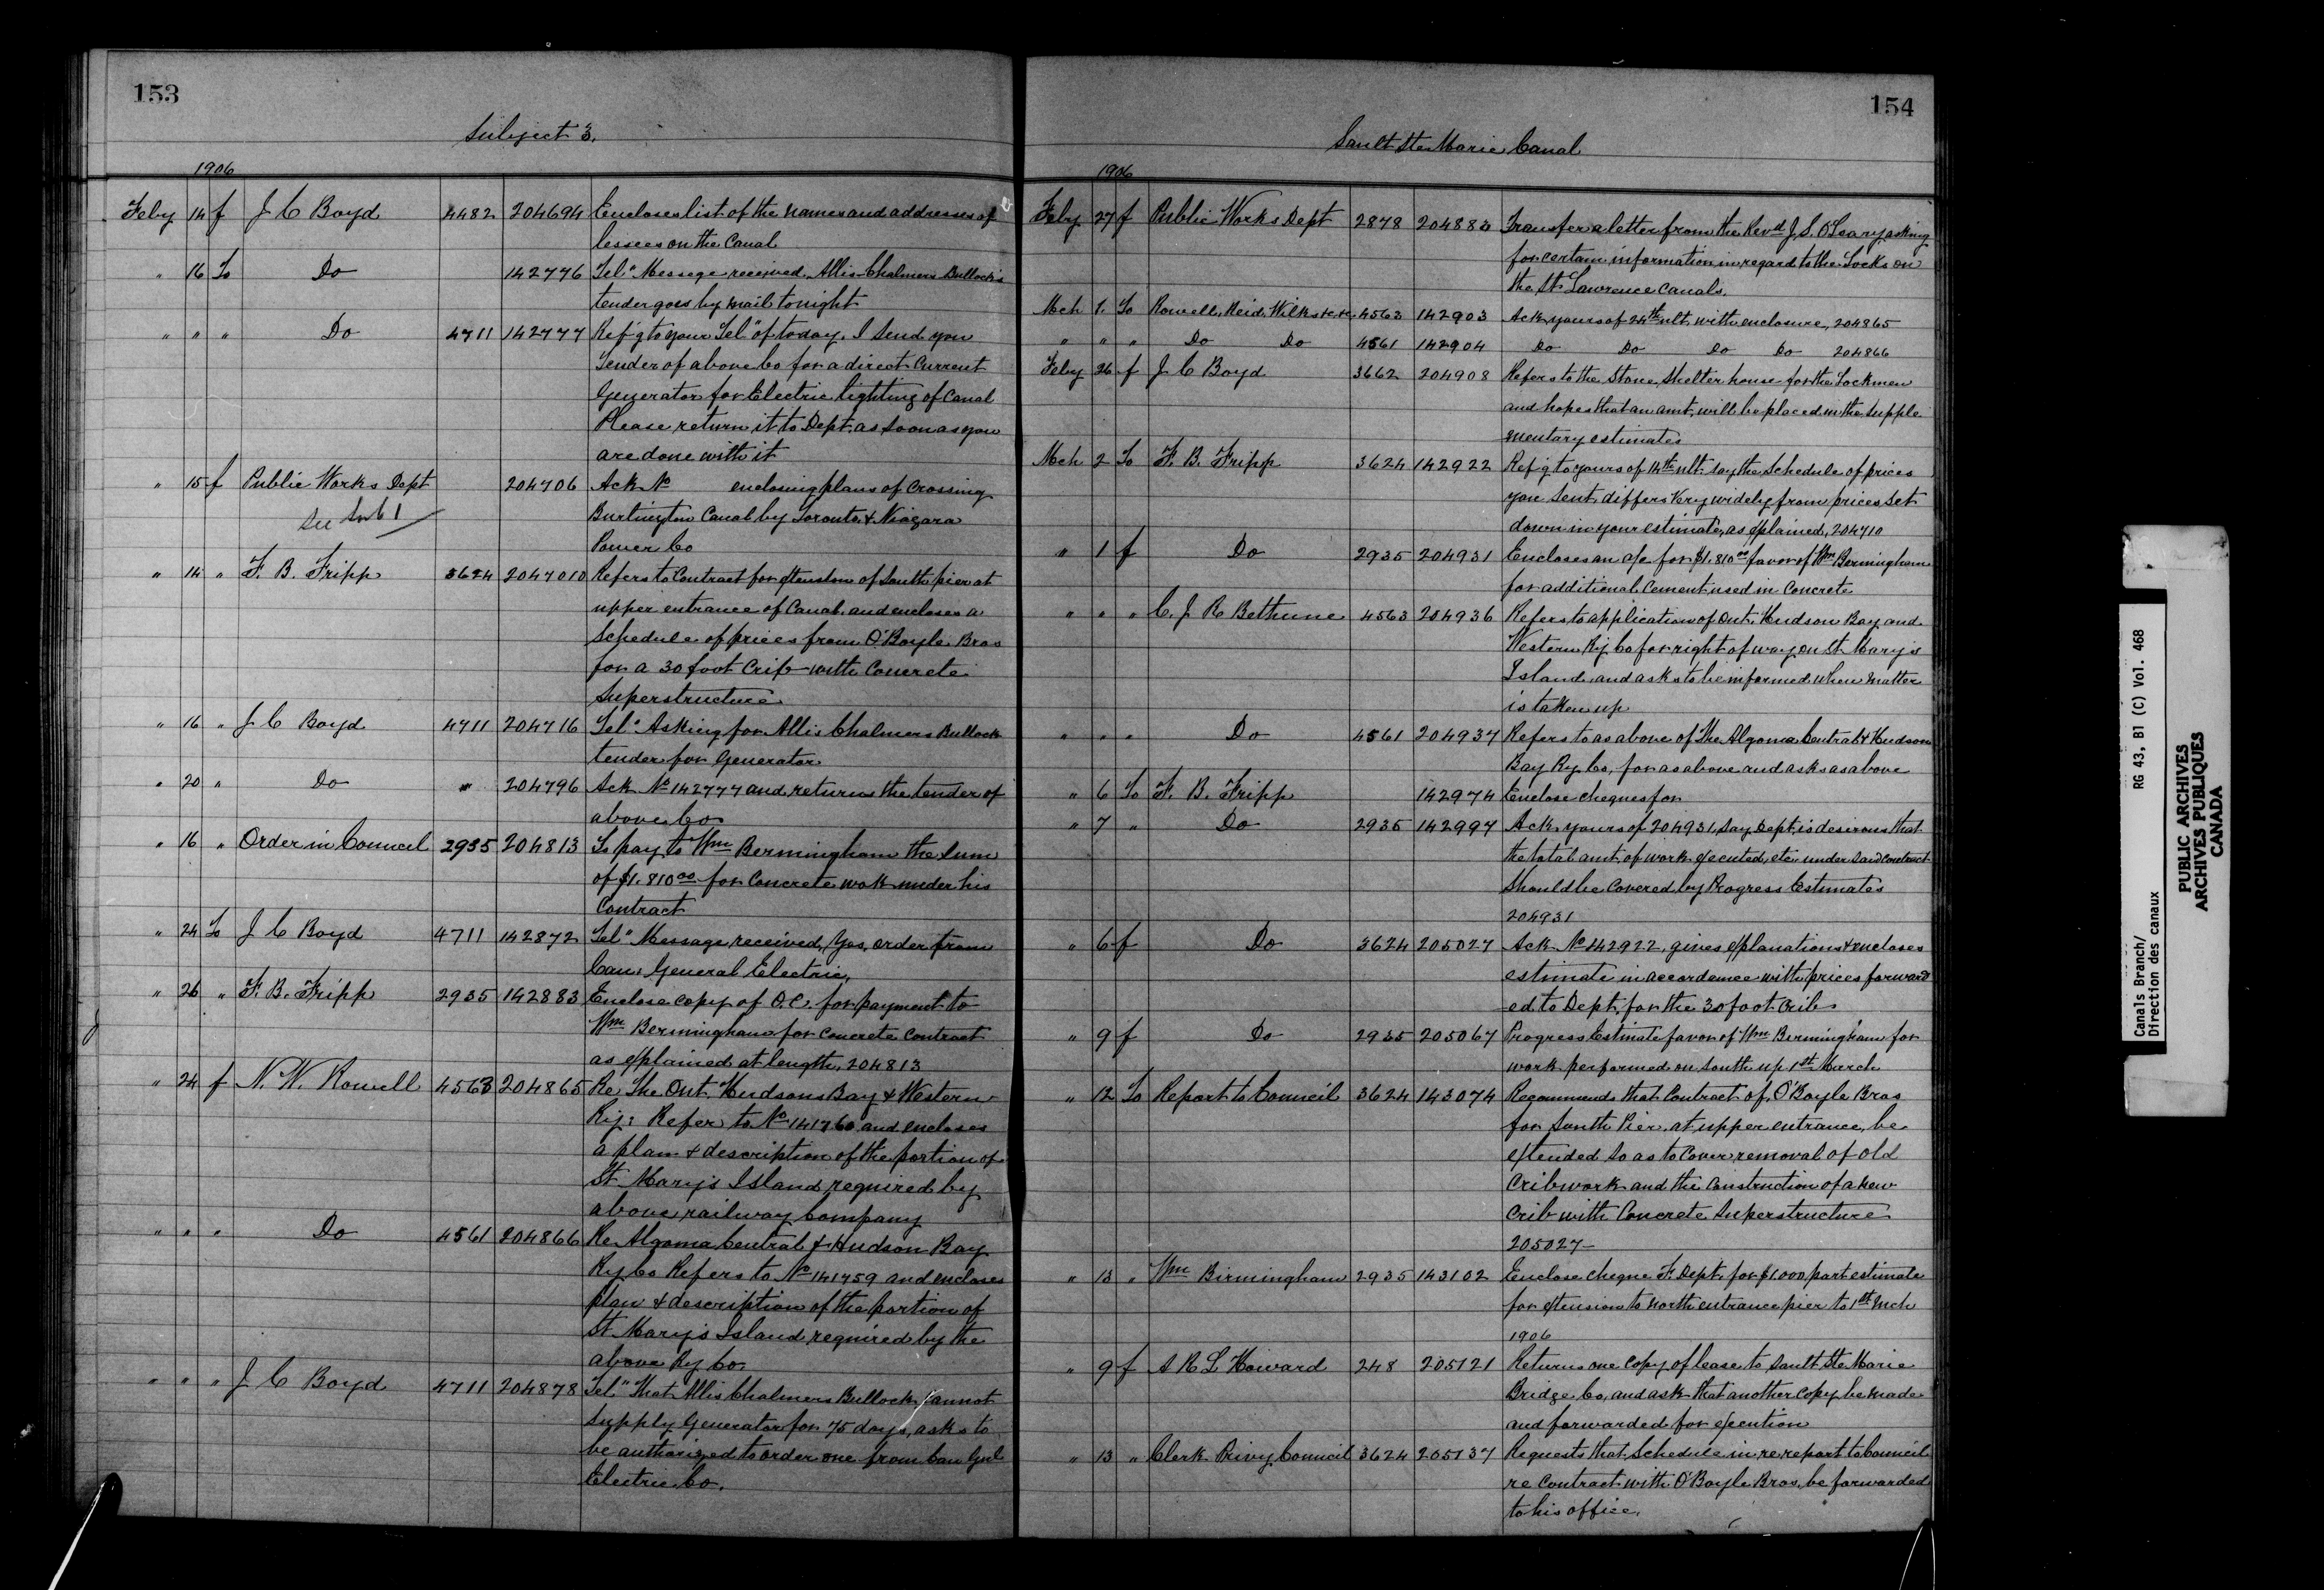 153
Subject 3.
1906
Feby 14 f J C Boyd 4482 204694 Encloses list of the names and addresses of
lessees on the Canal
" 16 To Do 142776 Tel" Message received. Allis-Chalmers Bullock's
tender goes by mail tonight
" " " Do 4711 142777 Ref'g to your Tel" of today. I send you
Tender of above Co for a direct Current
Generator for Electric lighting of Canal
Please return it to Dept. as soon as you
are done with it
" 15 f Public Works Dept 204706 Ack No enclosing plans of Crossing
See Sub 1 Burlington Canal by Toronto & Niagara
Power Co
" 14 " F. B. Fripp 3624 2047010 Refers to Contract for extension of South pier at
upper entrance of Canal. and encloses a
Schedule of prices from O'Boyle Bros
for a 30 foot Crib with Concrete
Superstructure
" 16 " J C Boyd 4711 204716 Tel" Asking for Allis Chalmers Bullock
tender for Generator
" 20 " Do " 204796 Ack No 142777 and returns the tender of
above Co
" 16 " Order in Council 2935 204813 To pay to Wm Bermingham the Sum
of $1.810 00 for Concrete work under his
Contract
" 24 To J C Boyd 4711 142872 Tel" Message received, Yes, order from
Can. General Electric,
" 26 " F. B. Fripp 2935 142883 Enclose copy of O.C. for payment to
Wm Bermingham for Concrete Contract
as explained at length, 204813
" 24 f N. W. Rowell 4563 204865 Re The Ont. Hudsons Bay & Western
Ry: Refer to No 141760 and encloses
a plan & description of the portion of
St Mary's Island required by
above railway Company
" " " Do 4561 204866 Re Algoma Central & Hudson Bay
Ry Co Refers to No 141759 and encloses
plan & description of the portion of
St Mary's Island required by the
above Ry Co
" " " J C Boyd 4711 204878 Tel" That Allis Chalmers Bullock cannot
supply Generator for 75 days, asks to
be authorized to order one from Can Gnl
Electric Co.
154
Sault Ste Marie Canal
1906
Feby 27 f Public Works Dept 2878 204883 Transfer a letter from the Revd J. S. O'Leary, asking
for certain information in regard to the Locks on
the St Lawrence Canals.
Mch 1. To Rowell, Reid, Wilks &c &c 4563 142903 Ack yours of 24th ult. with enclosure, 204865
" " " Do Do 4561 142904 Do Do Do Do 204866
Feby 26 f J C Boyd 3662 204908 Refers to the Stone Shelter house for the Lockmen
and hopes that an amt, will be placed in the Supple
mentary estimates
Mch 2 To F. B. Fripp 3624 142922 Ref'g to yours of 14th ult. say the Schedule of prices
you sent differs very widely from prices set
down in your estimate, as explained, 204710
" 1 f Do 2935 204931 Encloses an a/c for $1.810 00 favor of Wm Bermingham
for additional Cement used in Concrete
" " " C. J R Bethune 4563 204936 Refers to application of Ont. Hudson Bay and
Western Ry Co for right of way on St Mary's
Island and asks to be informed when matter
is taken up
" " " Do 4561 204937 Refers to as above of The Algoma Central & Hudson
Bay Ry Co, for as above and asks as above
" 6 To F. B. Fripp 142974 Enclose cheques for
" 7 " Do 2935 142997 Ack yours of 204931, say Dept. is desirous that
the total amt. of work executed, etc under said contract
should be Covered by Progress Estimates
204931
" 6 f Do 3624 205027 Ack No 142922, gives explanations & encloses
estimate in accordance with prices forward
ed to Dept. for the 30 foot Crib
" 9 f Do 2935 205067 Progress Estimate favor of Wm Bermingham for
work performed on South up 1st March
" 12 To Report to Council 3624 143074 Recommends that Contract of, O'Boyle Bros
for South Pier, at upper entrance, be
extended so as to Cover removal of old
Cribwork and the Construction of a new
Crib with Concrete Superstructure
205027 -
" 13 " Wm Birmingham 2935 143102 Enclose cheque F. Dept. for $1.000 part estimate
for extension to north entrance pier to 1st Mch
1906
" 9 f A R L Howard 248 205121 Returns one copy of lease to Sault Ste Marie
Bridge Co, and ask that another copy be made
and forwarded for execution
" 13 " Clerk Privy Council 3624 205137 Requests that Schedule in re report to Council
re Contract with O'Boyle Bros. be forwarded
to his office.
Canals Branch/ RG 43, B1 (C) Vol. 468
Direction des canaux
PUBLIC ARCHIVES
ARCHIVES PUBLIQUES
CANADA